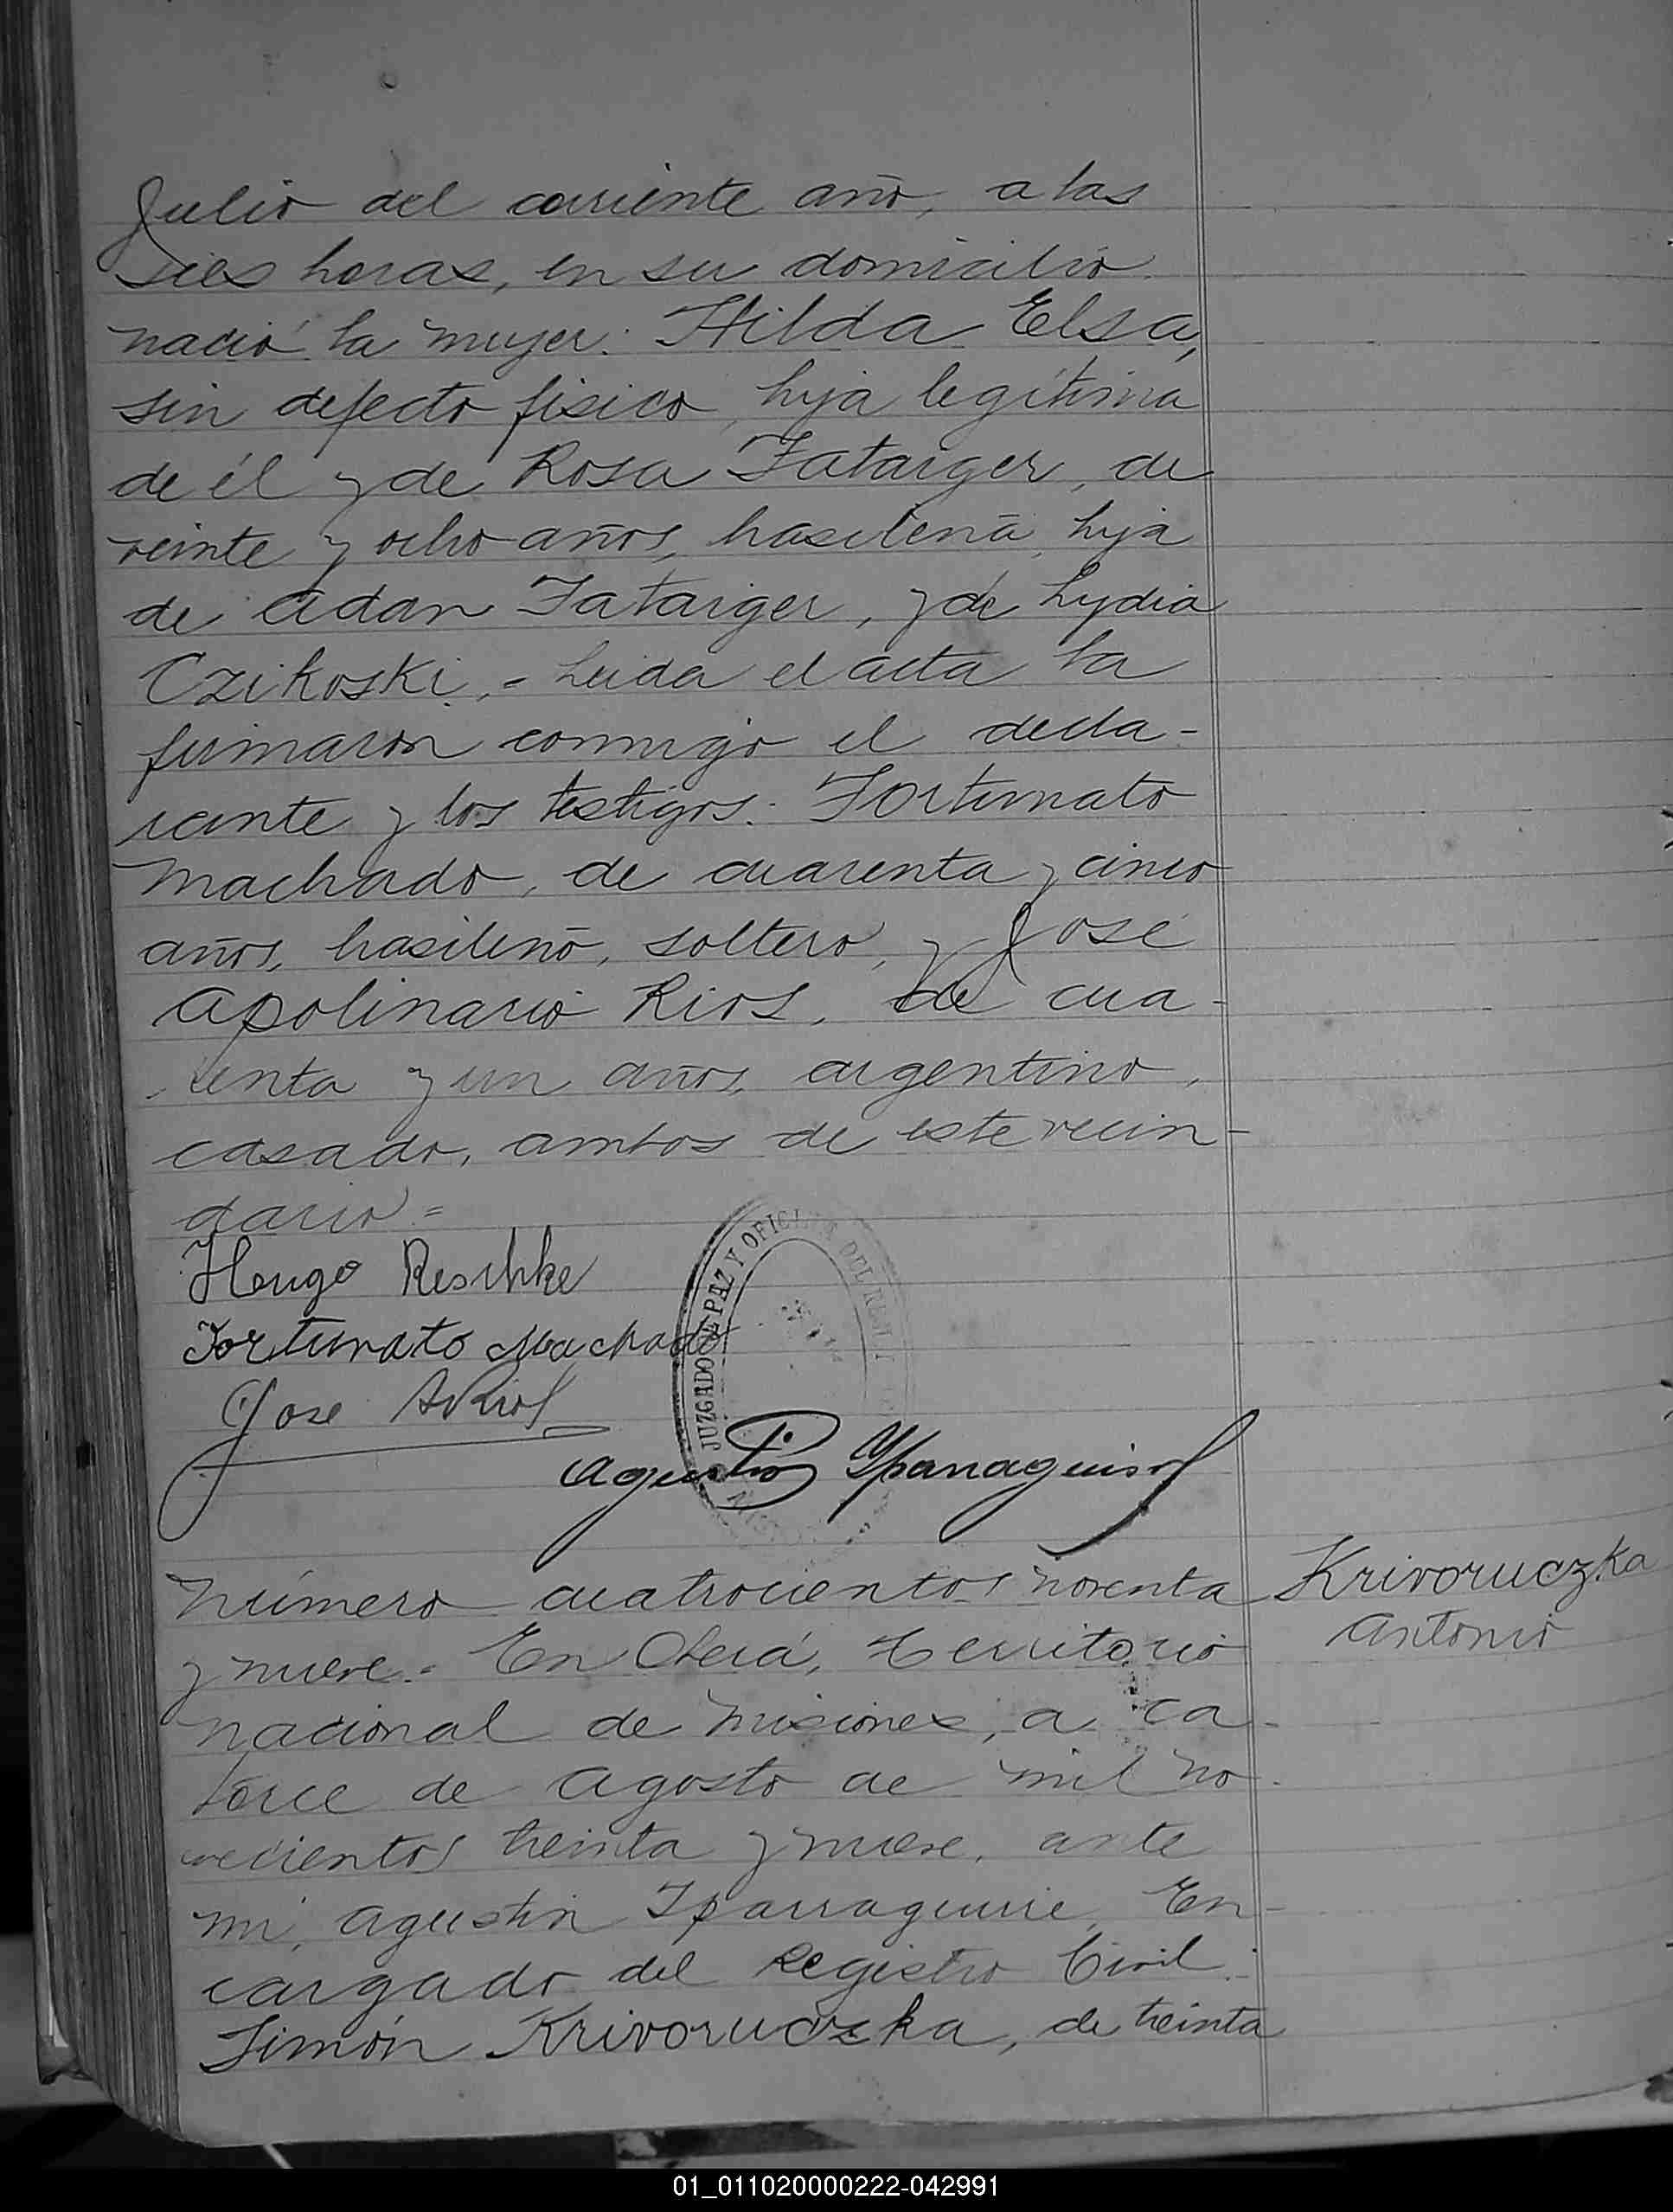 Julio del corriente año, a las
seis horas, en su domicilio
nació la mujer: Hilda Elsa,
sin defecto fisico, hija legítima
de él y de Rosa Fataiger, de
veinte y ocho años, brasileña, hija
de Adan Fataiger, y de Lydia
Czikoski.- Leida el acta la
firmaron conmigo el decla-
rante y los testigos: Fortunato
Machado, de cuarenta y cinco
años, brasileño, soltero, y José
Apolinario Rios, de cua-
renta y un años, argentino,
casado, ambos de este vecin-
dario=
Hugo Reschke
Fortunato Machado
Jose A Rios
JUZGADO DE PAZ Y OFICINA DEL
Agustin Yparraguirre
Número cuatrocientos noventa
y nueve.- En Oberá, Territorio
nacional de Misiones, a ca-
torce de Agosto de mil no-
vecientos treinta y nueve, ante
mí, Agustin Iparraguirre, En-
cargado del Registro Civil:
Simón Krivoruczka, de treinta
Krivoruczka
Antonio
01_011020000222-042991